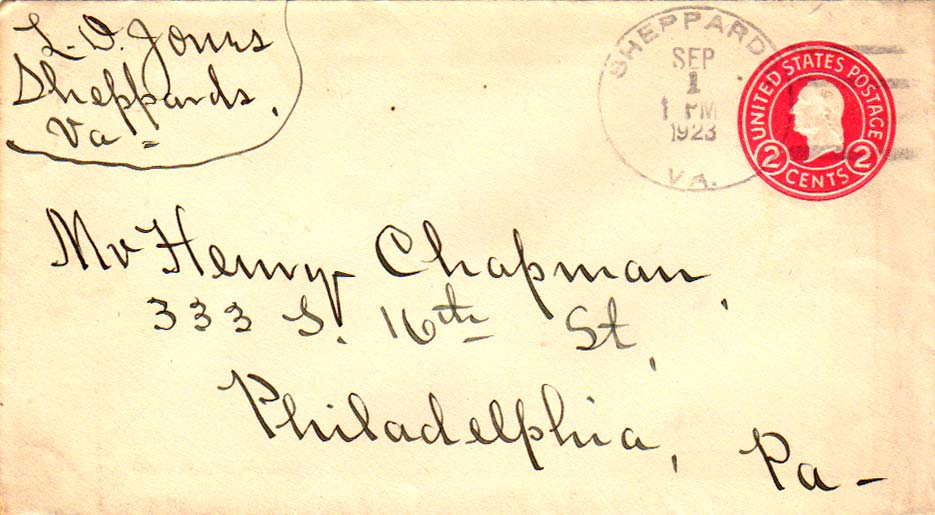 L. D. Jones
Sheppards,
Va =
SHEPPARD
SEP
1
1 PM
1923
VA.
UNITED STATES POSTAGE
2 CENTS 2
Mr Henry Chapman,
333 S. 16th St,
Philadelphia, Pa -